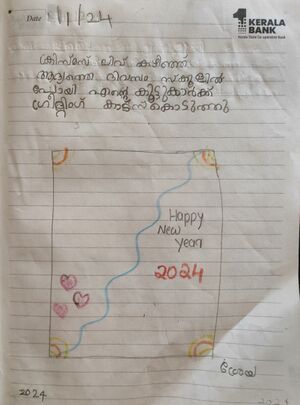 Date 1/1/24
1 KERALA BANK
Kerala State Co-operative Bank
ക്രിസ്മസ് ലീവ് കഴിഞ്ഞ്
ആദ്യത്തെ ദിവസം സ്കൂളിൽ
പോയി എന്റെ കൂട്ടുകാർക്ക്
ഗ്രീറ്റിംഗ് കാർഡ് കൊടുത്തു
Happy
New
Year
2024
ശ്രേയ
2024
2024